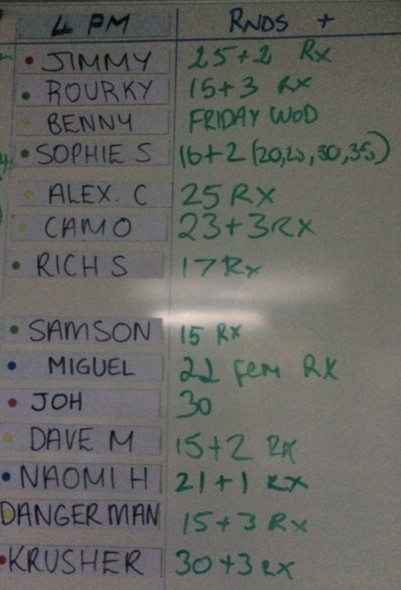 4 PM RNDS +
JIMMY 25+2 Rx
ROURKY 15+3 Rx
BENNY FRIDAY WOD
SOPHIE S 16+2 (20,25,30,35)
ALEX. C 25 RX
CAMO 23+3RX
RICH S 17 Rx
SAMSON 15 RX
MIGUEL 22 fem RX
JOH 30
DAVE M 15+2 RX
NAOMI H 21+1 RX
DANGERMAN 15+3 Rx
KRUSHER 30+3 RX